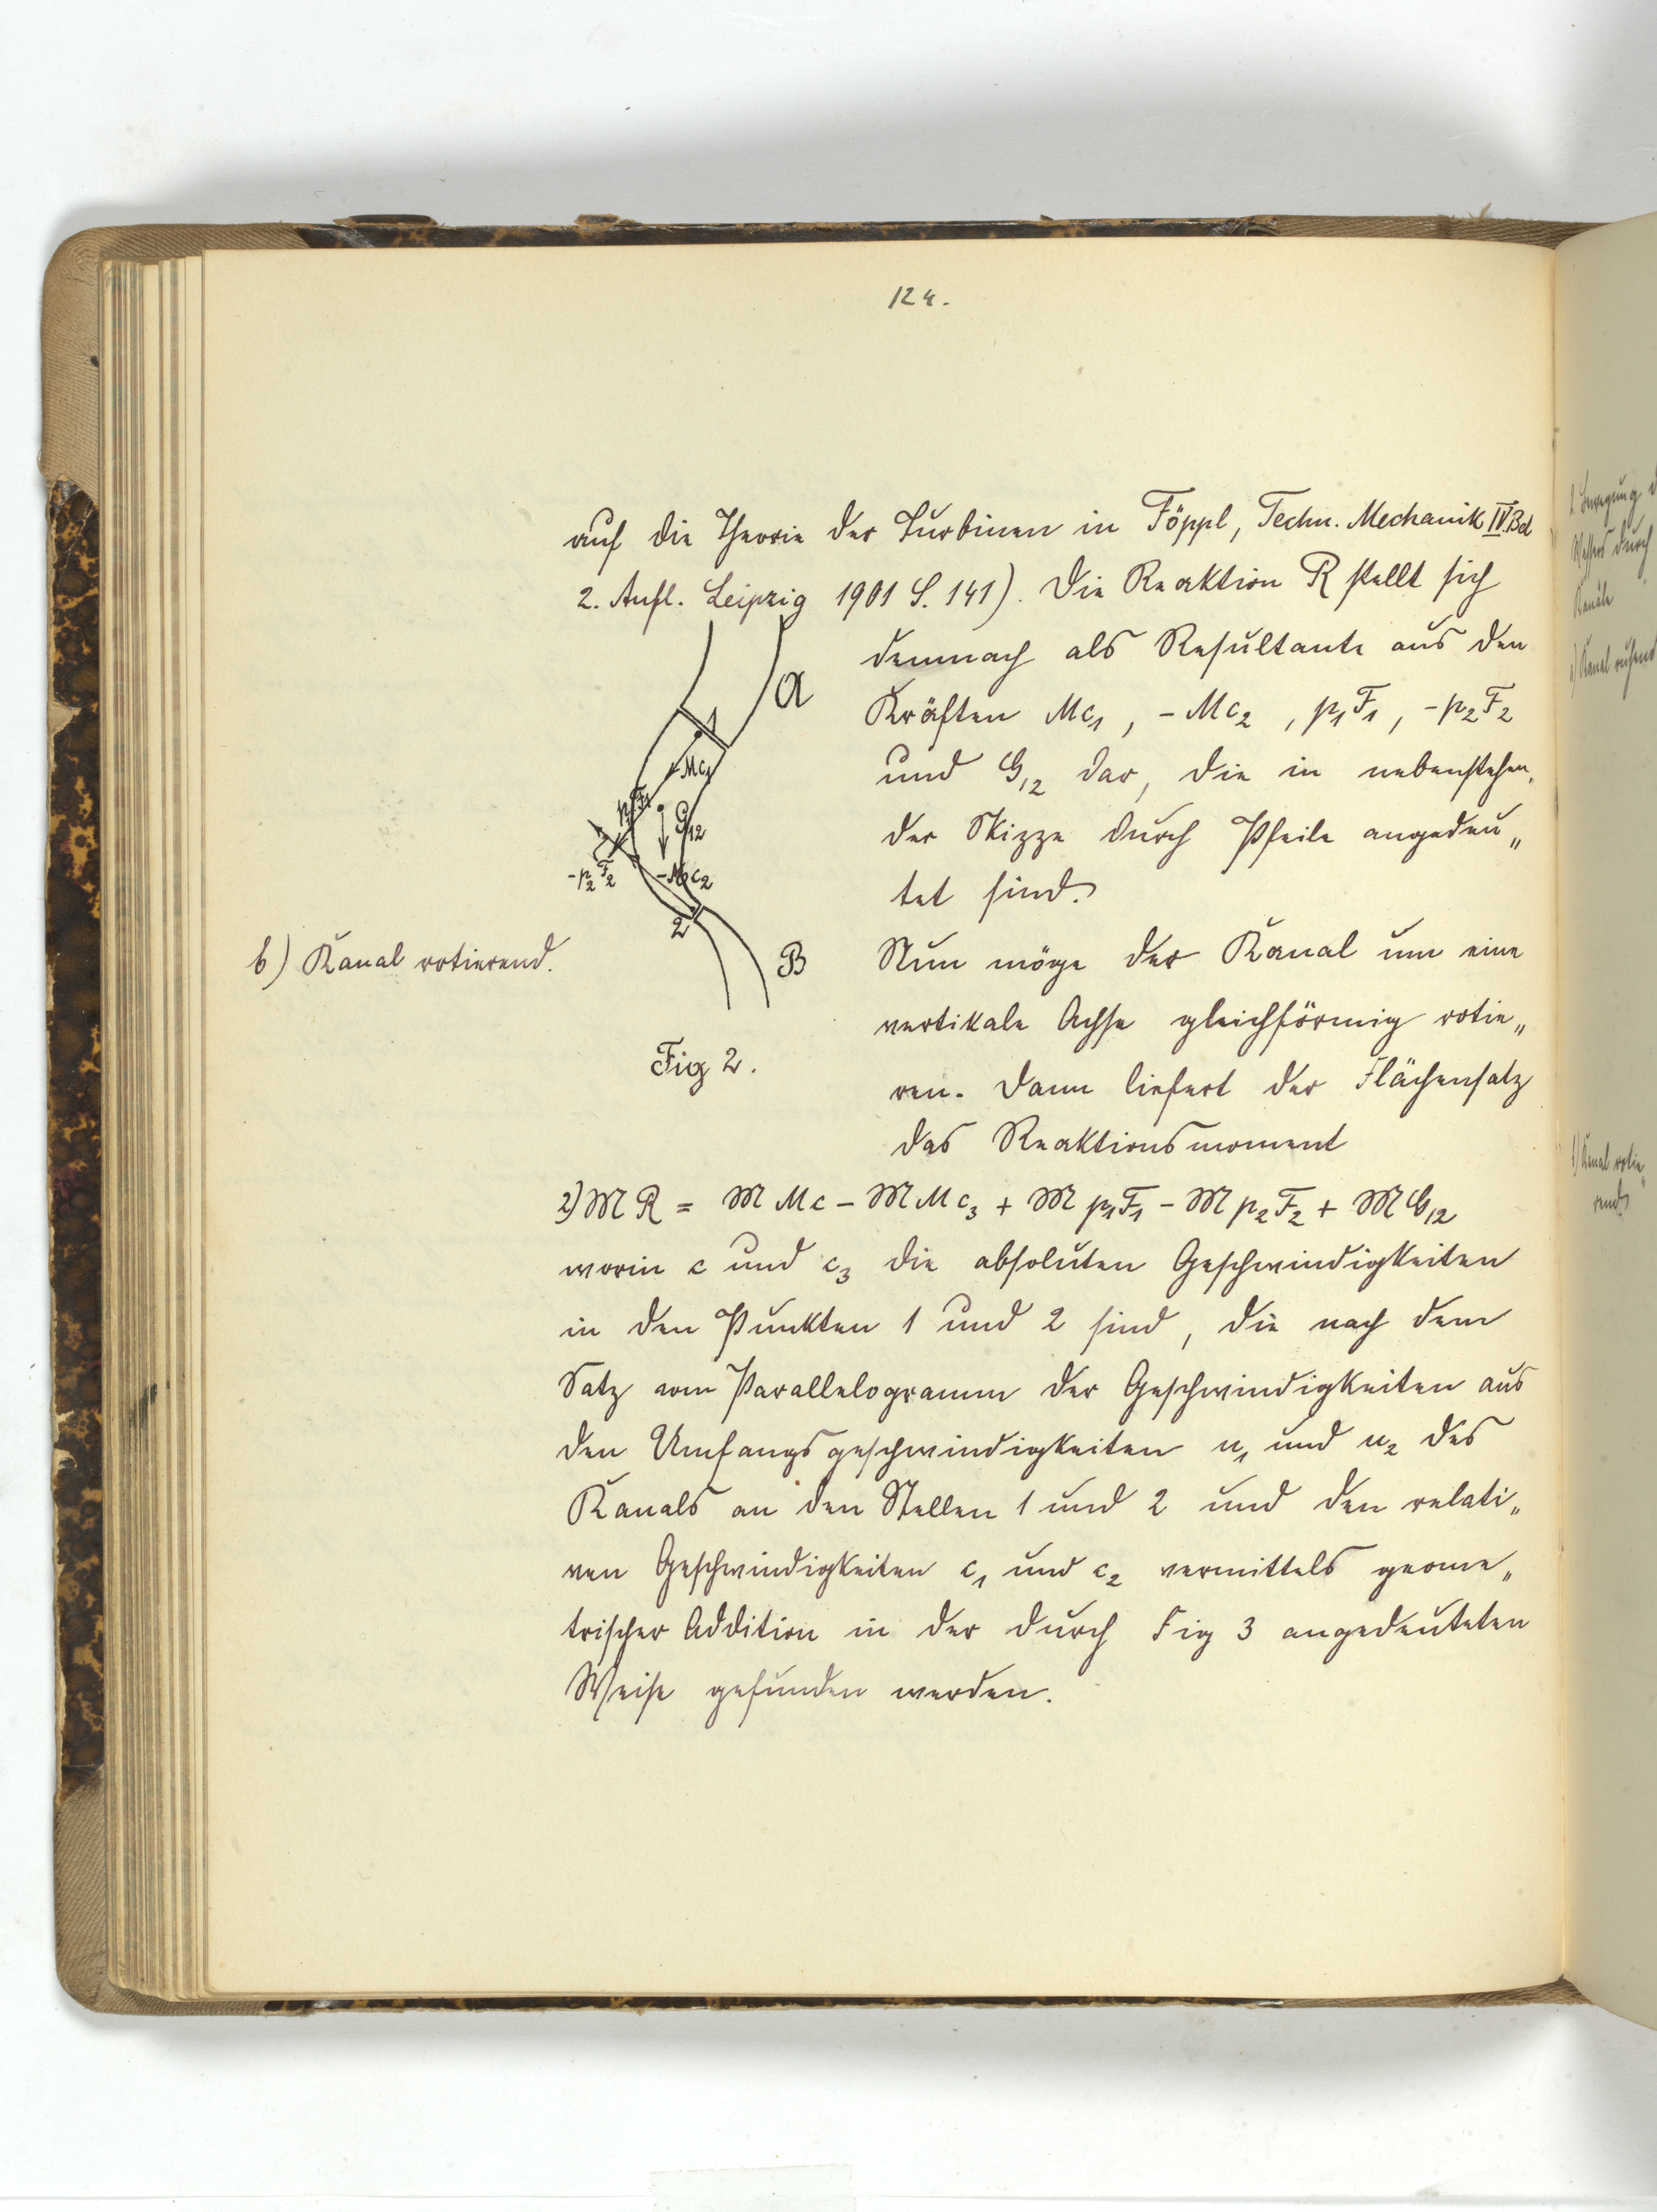 124.
auf die Theorie der Turbinen in Föppl, Techn. Mechanik IV. Bd
2. Aufl. Leipzig 1901 S. 141). Die Reaktion R stellt sich
demnach als Resultante aus den
Kräften Mc₁, -Mc₂, p₁F₁, -p₂F₂
und G₁₂ dar, die in nebenstehen„
der Skizze durch Pfeile angedeu„
tet sind.
A
1
Mc₁
p₁F₁
G₁₂
-p₂F₂
-Mc₂
2
B
Fig 2.
b) Kanal rotierend.
Nun möge der Kanal um eine
vertikale Achse gleichförmig rotie„
ren. Dann liefert der Flächensatz
das Reaktionsmoment
2) 𝔐 R = 𝔐 Mc - 𝔐 Mc₃ + 𝔐 p₁F₁ - 𝔐 p₂F₂ + 𝔐 G₁₂
worin c und c₃ die absoluten Geschwindigkeiten
in den Punkten 1 und 2 sind, die nach dem
Satz vom Parallelogramm der Geschwindigkeiten aus
den Umfangsgeschwindigkeiten u₁ und u₂ des
Kanals an den Stellen 1 und 2 und den relati„
ven Geschwindigkeiten c₁ und c₂ vermittels geome„
trischer Addition in der durch Fig 3 angedeuteten
Weise gefunden werden.
2. Bewegung d
Wassers durch
Kanäle
a) Kanal ruhend
b) Kanal rotie„
rend